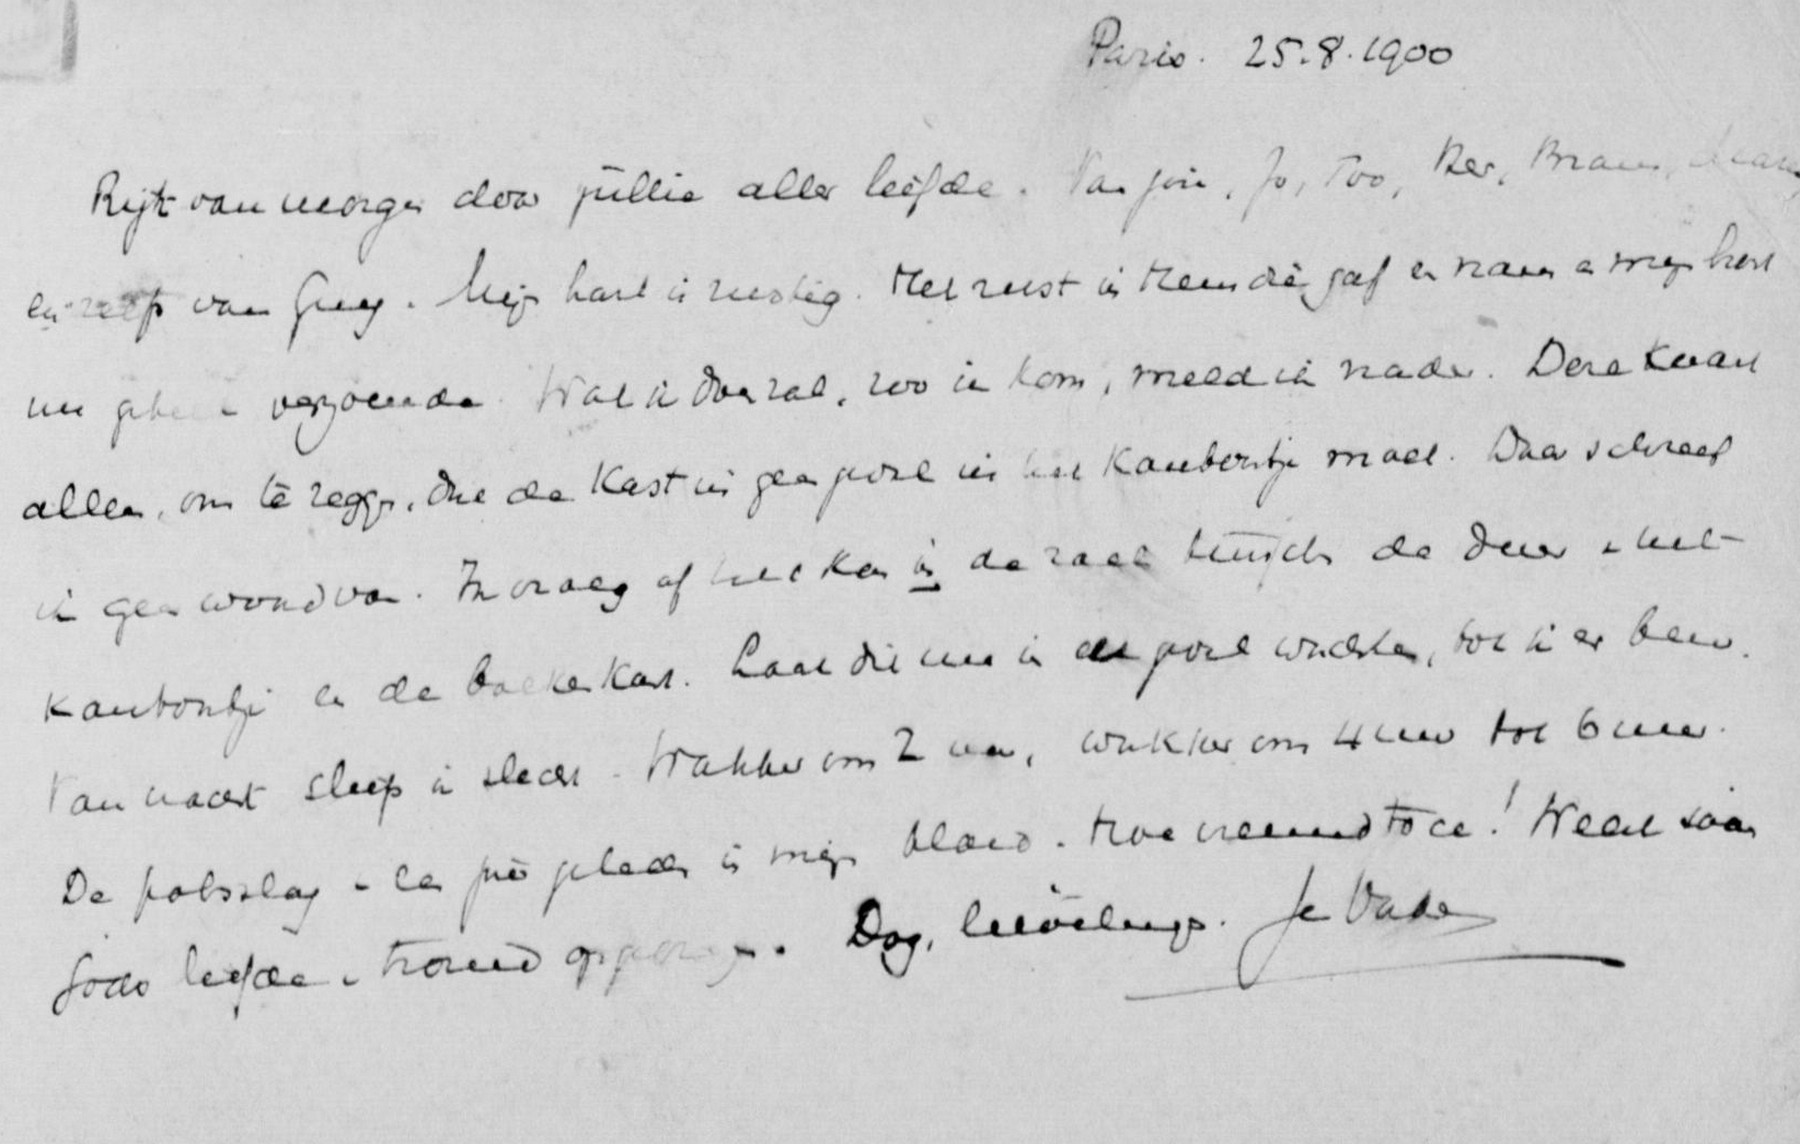 Paris. 25.8.1900
Rijk van morgen door jullie aller liefde. Van jou, Jo, Too, Her, Bram,
en van Guy. Mijn hart is rustig. Het rust in Hem die gaf en nam en mijn hart
nu geheel verzoende. Wat ik doen zal, zoo ik kom, meld ik nader. Deze kaart
alleen, om te zeggen, dat de Kast in geen geval in het Kantoortje moet. Daar schreef
ik geen woord van. Ik vroeg of het kon in de zaal tusschen de deur v. het
kantoortje en de boekenkast. Laat dit nu in elk geval wachten, tot ik er ben.
Van nacht sliep ik slecht. Wakker om 2 uur, wakker om 4 uur tot 6 uur.
De polsslag v. is mijn bloed. Hoe vreemd toch! Weest saam
Gods liefde en trouw Dag, lievelingen. Je Vader